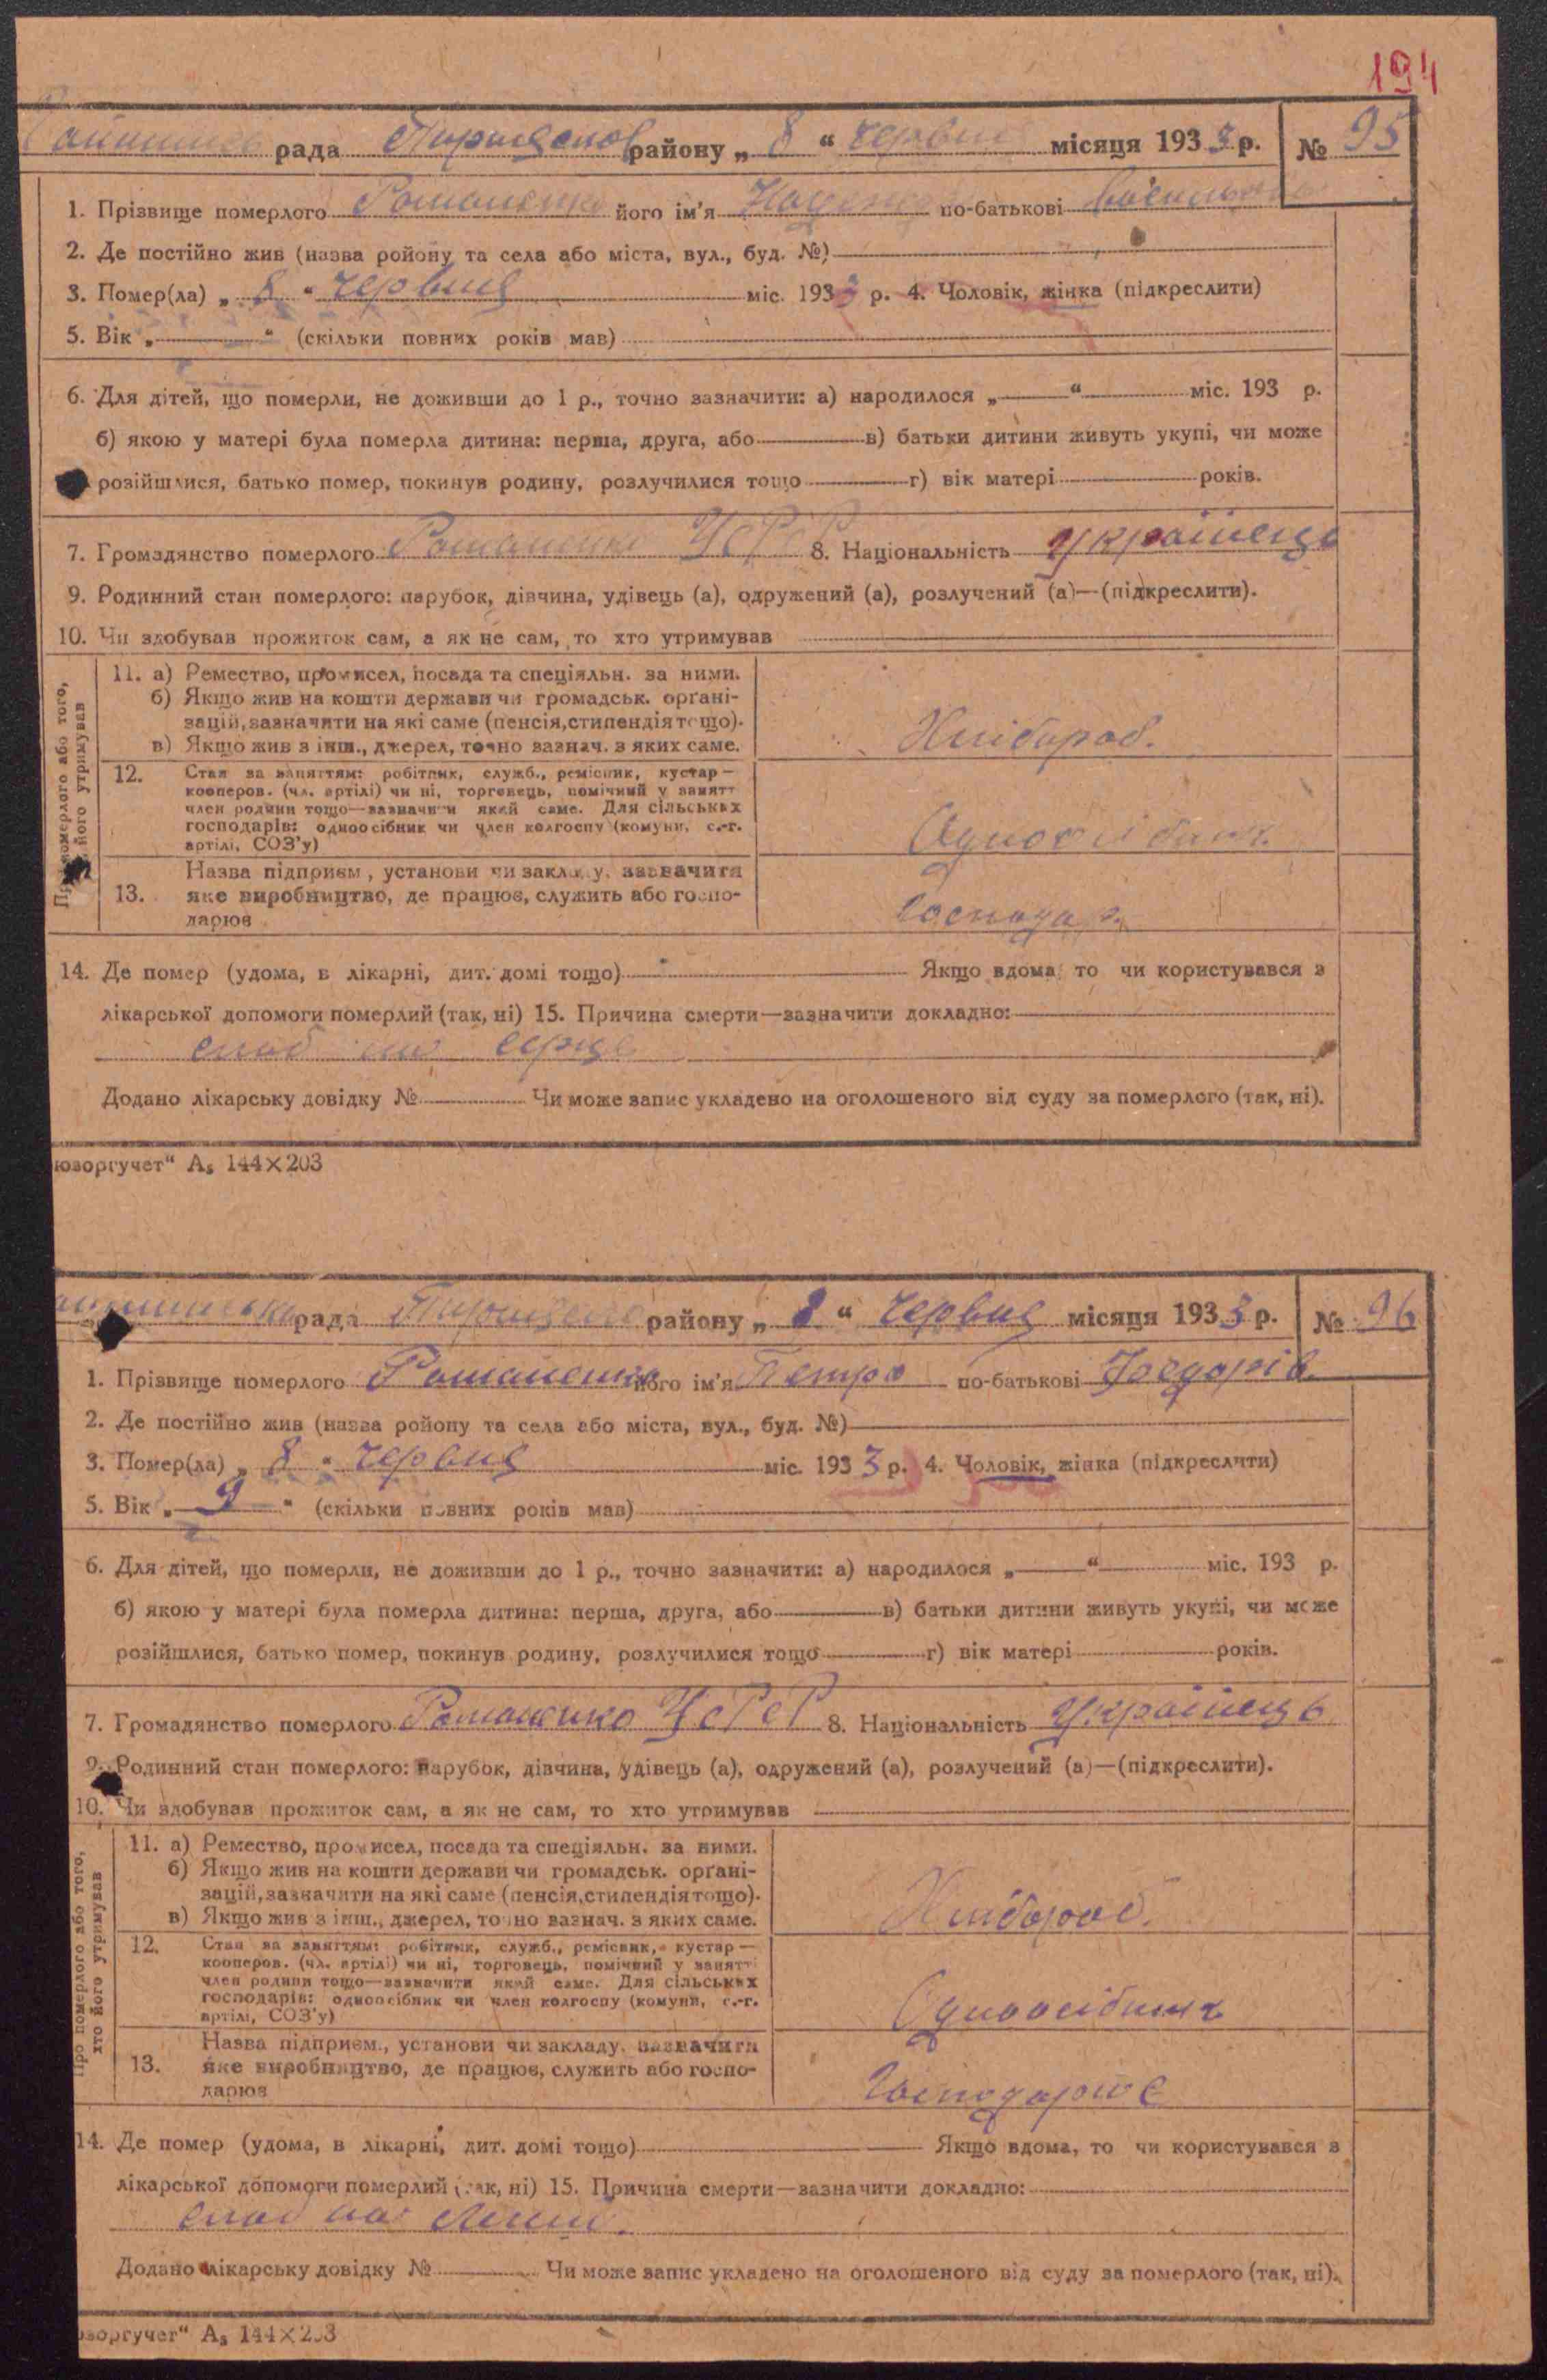 194
рада району „ 8 “ червня місяця 1933 р. № 95
1. Прізвище померлого Романенко його ім'я Надежда по-батькові
2. Де постійно жив (назва ройону та села або міста, вул., буд. №)
3. Помер(ла) „ 8 “ червня міс. 1933 р. 4. Чоловік, жінка (підкреслити)
5. Вік „ “ (скільки повних років мав)
6. Для дітей, що померли, не доживши до 1 р., точно зазначити: а) народилося „ “ міс. 193 р.
б) якою у матері була померла дитина: перша, друга, або в) батьки дитини живуть укупі, чи може
розійшлися, батько помер, покинув родину, розлучилися тощо г) вік матері років.
7. Громадянство померлого Романенко УСРР 8. Національність Українець
9. Родинний стан померлого: парубок, дівчина, удівець (а), одружений (а), розлучений (а)—(підкреслити).
10. Чи здобував прожиток сам, а як не сам, то хто утримував
Про померлого або того,
його утримував
11. а) Ремество, промисел, посада та спеціяльн. за ними.
б) Якщо жив на кошти держави чи громадськ. орґані-
зацій, зазначити на які саме (пенсія, стипендія тощо).
в) Якщо жив з інш., джерел, точно зазнач. з яких саме.
Хлібороб.
12. Стан за заняттям: робітник, служб., ремісник, кустар —
кооперов. (чл. артілі) чи ні, торговець, помічний у занятт
член родини тощо—зазначити який саме. Для сільських
господарів: одноосібник чи член колгоспу (комуни, с.-г.
артілі, СОЗ'у)
Одноосібник
Назва підприєм., установи чи закладу, зазначити
13. яке виробництво, де працює, служить або госпо-
дарює
Господар.
14. Де помер (удома, в лікарні, дит. домі тощо) Якщо вдома, то чи користувався з
лікарської допомоги померлий (так, ні) 15. Причина смерти—зазначити докладно:
слаб на серце
Додано лікарську довідку № Чи може запис укладено на оголошеного від суду за померлого (так, ні).
юзоргучет“ А₅ 144×203
рада району „ 8 “ червня місяця 1933 р. № 96
1. Прізвище померлого Романенко його ім'я Петро по-батькові Федорів
2. Де постійно жив (назва ройону та села або міста, вул., буд. №)
3. Помер(ла) „ 8 “ червня міс. 1933 р. 4. Чоловік, жінка (підкреслити)
5. Вік „ 9 “ (скільки повних років мав)
6. Для дітей, що померли, не доживши до 1 р., точно зазначити: а) народилося „ “ міс. 193 р.
б) якою у матері була померла дитина: перша, друга, або в) батьки дитини живуть укупі, чи може
розійшлися, батько помер, покинув родину, розлучилися тощо г) вік матері років.
7. Громадянство померлого Романенко УСРР 8. Національність Українець
9. Родинний стан померлого: парубок, дівчина, удівець (а), одружений (а), розлучений (а)—(підкреслити).
10. Чи здобував прожиток сам, а як не сам, то хто утримував
Про померлого або того,
хто його утримував
11. а) Ремество, промисел, посада та спеціяльн. за ними.
б) Якщо жив на кошти держави чи громадськ. орґані-
зацій, зазначити на які саме (пенсія, стипендія тощо).
в) Якщо жив з інш., джерел, точно зазнач. з яких саме.
Хлібороб.
12. Стан за заняттям: робітник, служб., ремісник, кустар —
кооперов. (чл. артілі) чи ні, торговець, помічний у занятті
член родини тощо—зазначити який саме. Для сільських
господарів: одноосібник чи член колгоспу (комуни, с.-г.
артілі, СОЗ'у)
Одноосібник
Назва підприєм., установи чи закладу, зазначити
13. яке виробництво, де працює, служить або госпо-
дарює
Господарює
14. Де помер (удома, в лікарні, дит. домі тощо) Якщо вдома, то чи користувався з
лікарської допомоги померлий (так, ні) 15. Причина смерти—зазначити докладно:
слаб на
Додано лікарську довідку № Чи може запис укладено на оголошеного від суду за померлого (так, ні).
юзоргучет“ А₅ 144×203